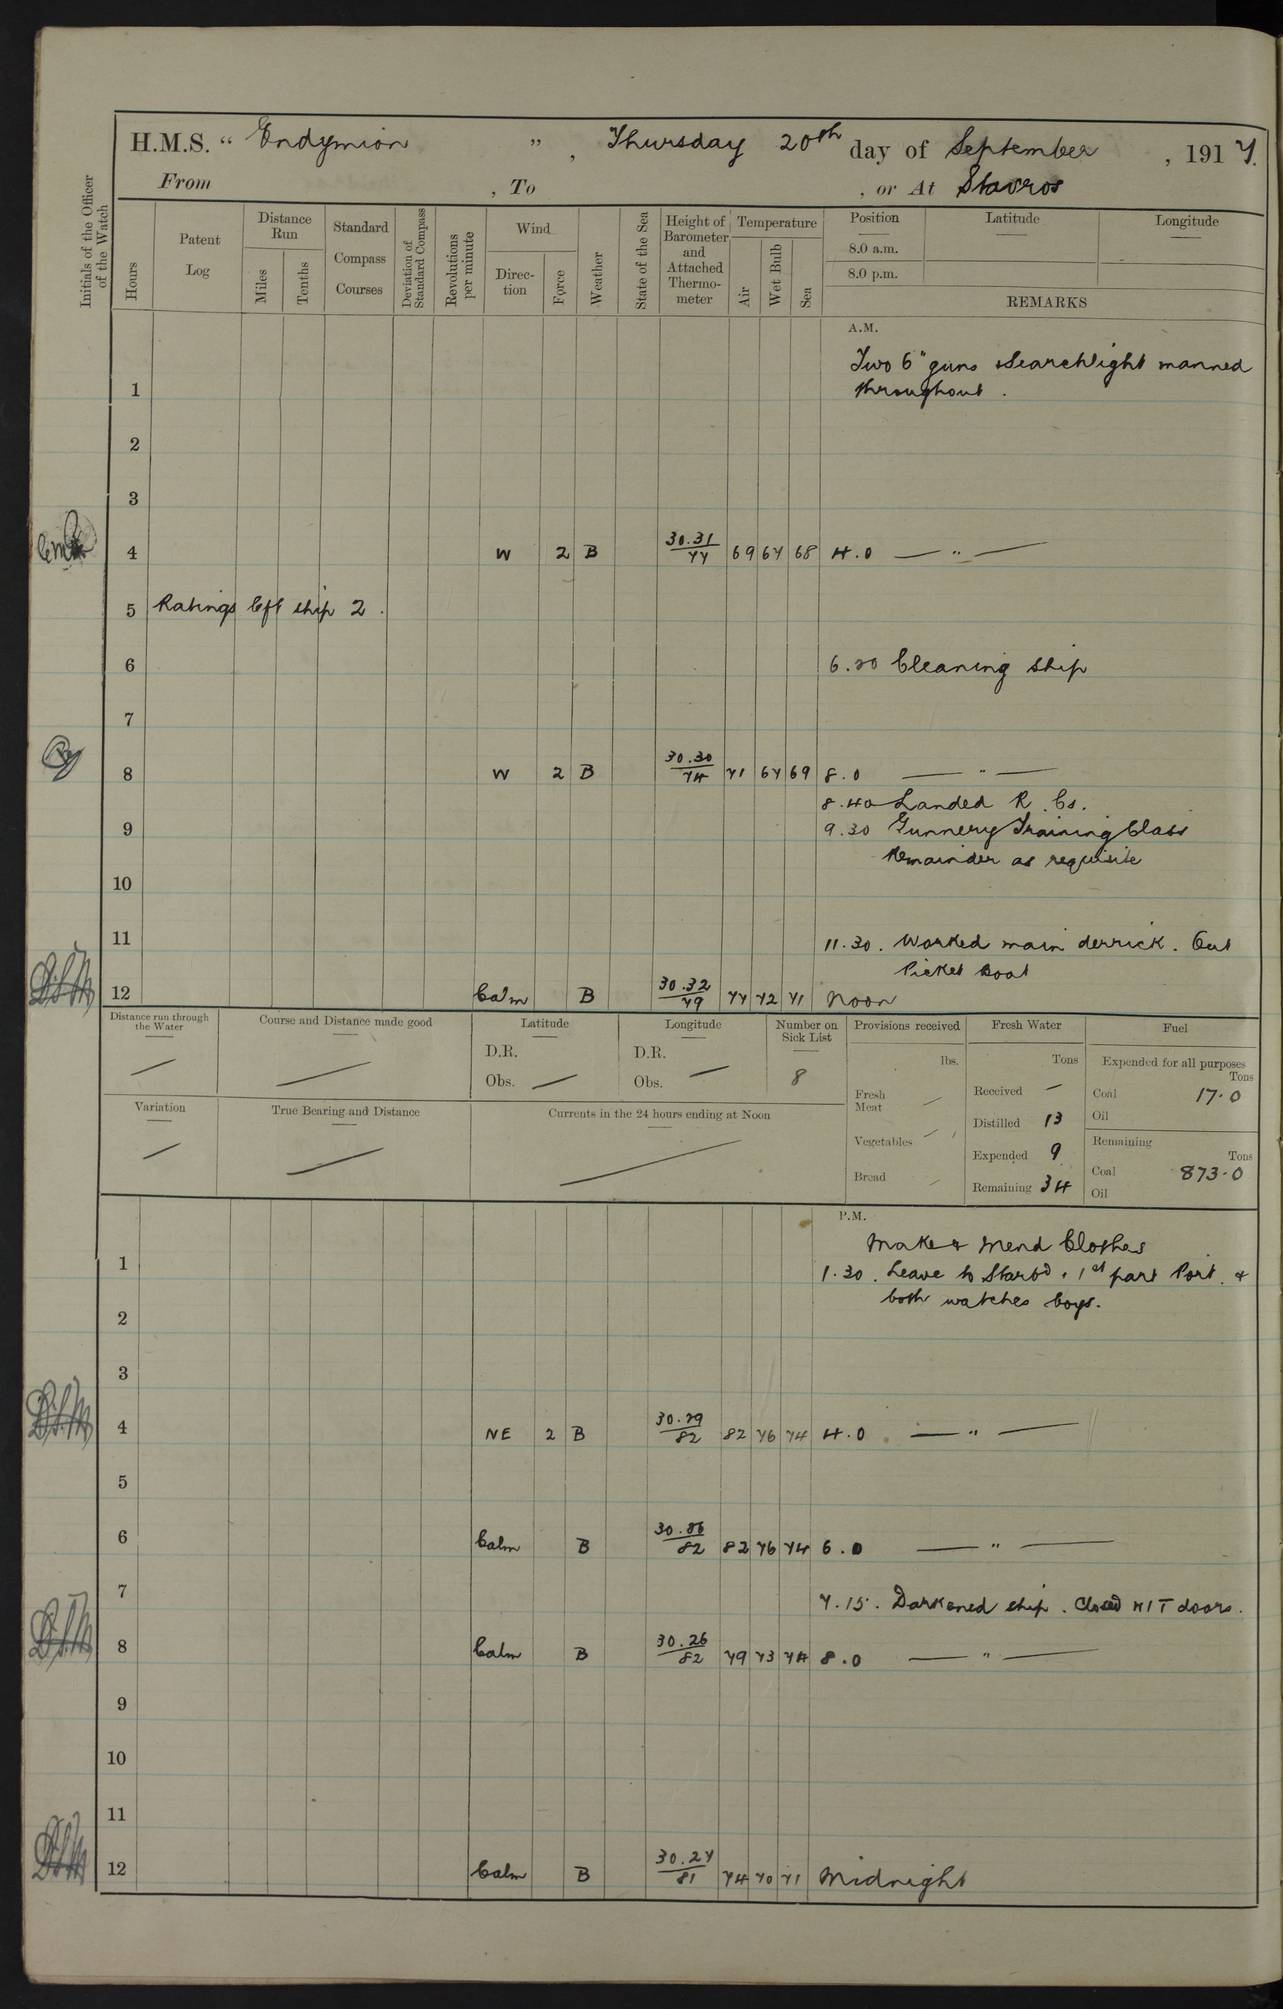 H.M.S. " Endymion ", Thursday 20th day of September, 1917.
From , To , or At Stavros
Initials of the Officer of the Watch
Hours
Patent Log
Distance Run
Miles
Tenths
Standard Compass Courses
Deviation of Standard Compass
Revolutions per minute
Wind
Direction
Force
Weather
State of the Sea
Height of Barometer and Attached Thermometer
Temperature
Air
Wet Bulb
Sea
Position Latitude Longitude
8.0 a.m.
8.0 p.m.
REMARKS
A.M.
Two 6" guns & Searchlight manned
1 throughout.
2
3
4 W 2 B 30.31/77 69 67 68 4.0 — " —
5 Ratings left ship 2.
6 6.20 Cleaning ship
7
8 W 2 B 30.30/74 71 67 69 8.0 — " —
8.40 Landed R.Cs.
9 9.30 Gunnery Training Class
Remainder as requisite
10
11 11.30. Worked main derrick. Out
Picket Boat
12 Calm B 30.32/79 77 72 71 Noon
Distance run through the Water —
Course and Distance made good —
Latitude
D.R.
Obs. —
Longitude
D.R.
Obs. —
Number on Sick List
8
Provisions received
lbs.
Fresh Meat —
Vegetables —
Bread —
Fresh Water
Tons
Received —
Distilled 13
Expended 9
Remaining 34
Fuel
Expended for all purposes
Tons
Coal 17.0
Oil
Remaining
Tons
Coal 873.0
Oil
Variation —
True Bearing and Distance —
Currents in the 24 hours ending at Noon —
P.M.
Make & Mend Clothes
1 1.30. Leave to Starbd. 1st part Port. &
both watches boys.
2
3
4 NE 2 B 30.29/82 82 76 74 4.0 — " —
5
6 Calm B 82 82 76 74 6.0 — " —
7 7.15. Darkened ship. Closed W/T doors.
8 Calm B 30.26/82 79 73 74 8.0 — " —
9
10
11
12 Calm B 30.27/81 74 70 71 Midnight